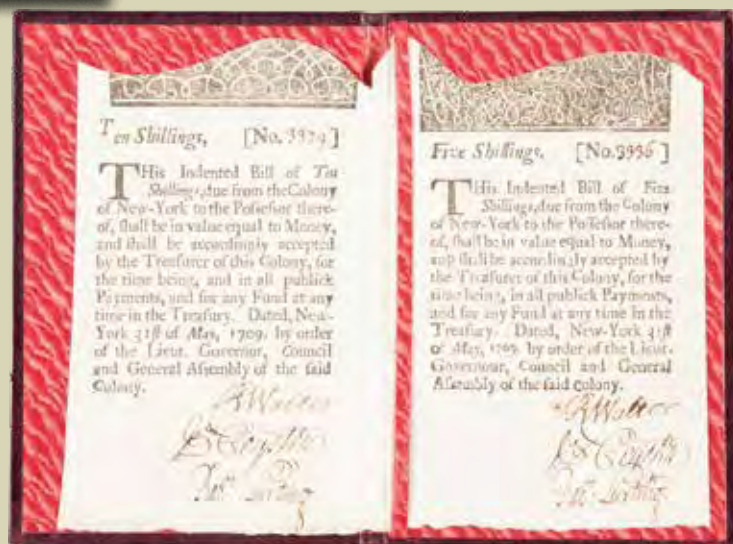 Ten Shillings, [No. 3929]
THis Indented Bill of Ten
Shillings, due from the Colony
of New-York to the Possessor there-
of, shall be in value equal to Money,
and shall be accordingly accepted
by the Treasurer of this Colony, for
the time being, and in all publick
Payments, and for any Fund at any
time in the Treasury. Dated, New-
York 31st of May, 1709. by order
of the Lieut. Governour, Council
and General Assembly of the said
Colony.
RWalter
Five Shillings. [No. 3936]
THis Indented Bill of Five
Shillings, due from the Colony
of New-York to the Possessor there-
of, shall be in value equal to Money,
and shall be accordingly accepted by
the Treasurer of this Colony, for the
time being, in all publick Payments,
and for any Fund at any time in the
Treasury. Dated, New-York 31st
of May, 1709. by order of the Lieut.
Governour, Council and General
Assembly of the said Colony.
RWalter